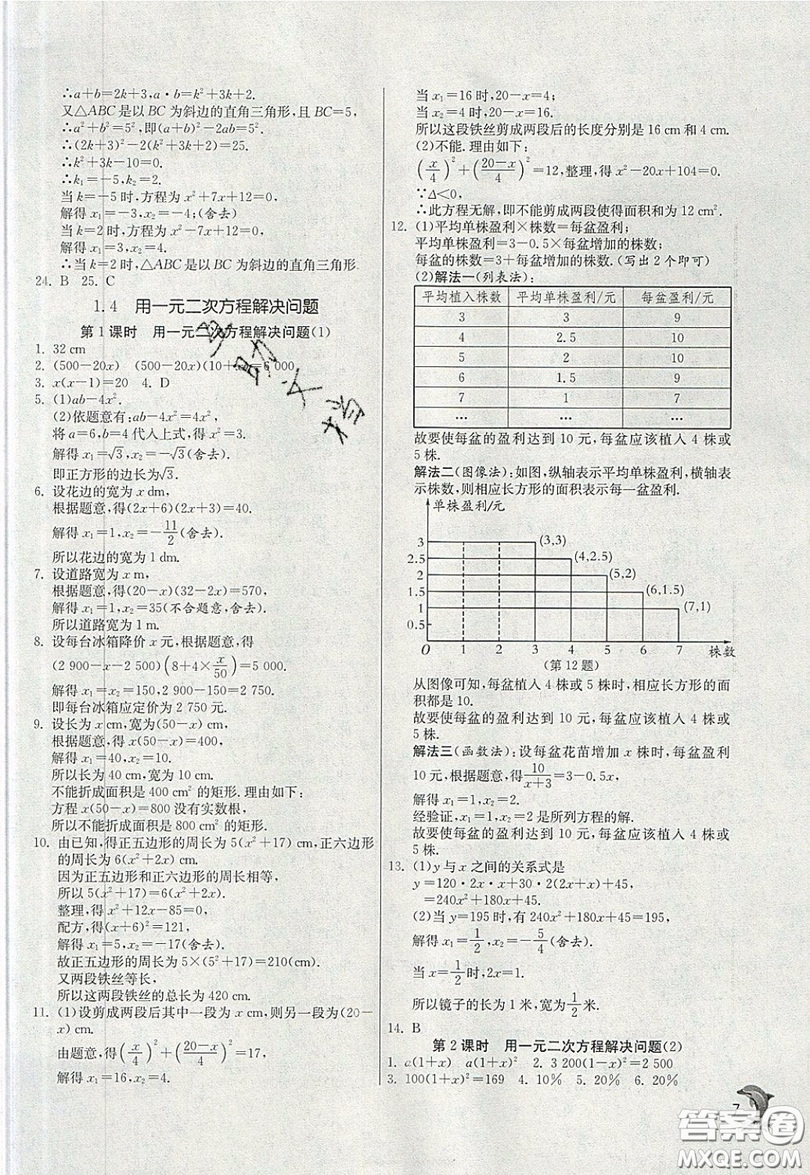 ∴a+b=2k+3,a·b=k²+3k+2.
又△ABC是以BC为斜边的直角三角形,且BC=5,
∴a²+b²=5²,即(a+b)²-2ab=5².
∴(2k+3)²-2(k²+3k+2)=25.
∴k²+3k-10=0.
∴k₁=-5,k₂=2.
当k=-5时,方程为x²+7x+12=0;
解得x₁=-3,x₂=-4;(舍去)
当k=2时,方程为x²-7x+12=0;
解得x₁=3,x₂=4.
∴当k=2时,△ABC是以BC为斜边的直角三角形.
24. B 25. C
1.4 用一元二次方程解决问题
第1课时 用一元二次方程解决问题(1)
1. 32 cm
2. (500-20x) (500-20x)(10+x)=6 000
3. x(x-1)=20 4. D
5. (1)ab-4x².
(2)依题意有:ab-4x²=4x²,
将a=6,b=4代入上式,得x²=3.
解得x₁=√3,x₂=-√3(舍去).
即正方形的边长为√3.
6. 设花边的宽为x dm,
根据题意,得(2x+6)(2x+3)=40.
解得x₁=1,x₂=-11/2(舍去).
所以花边的宽为1 dm.
7. 设道路宽为x m,
根据题意,得(20-x)(32-2x)=570,
解得x₁=1,x₂=35(不合题意,舍去)
所以道路宽为1 m.
8. 设每台冰箱降价x元,根据题意,得
(2 900-x-2 500)(8+4×x/50)=5 000.
解得x₁=x₂=150,2 900-150=2 750.
即每台冰箱应定价为2 750元.
9. 设长为x cm,宽为(50-x) cm,
根据题意,得x(50-x)=400.
解得x₁=40,x₂=10.
所以长为40 cm,宽为10 cm.
不能折成面积是800 cm²的矩形.理由如下:
方程x(50-x)=800没有实数根,
所以不能折成面积是800 cm²的矩形.
10. 由已知,得正五边形的周长为5(x²+17) cm,正六边形
的周长为6(x²+2x) cm.
因为正五边形和正六边形的周长相等,
所以5(x²+17)=6(x²+2x).
整理,得x²+12x-85=0,
配方,得(x+6)²=121,
解得x₁=5,x₂=-17(舍去).
故正五边形的周长为5×(5²+17)=210(cm).
又两段铁丝等长,
所以这两段铁丝的总长为420 cm.
11. (1)设剪成两段后其中一段为x cm,则另一段为(20-
x) cm.
由题意,得(x/4)²+((20-x)/4)²=17,
解得x₁=16,x₂=4,
当x₁=16时,20-x=4;
当x₂=4时,20-x=16.
所以这段铁丝剪成两段后的长度分别是16 cm和4 cm.
(2)不能.理由如下:
(x/4)²+((20-x)/4)²=12,整理,得x²-20x+104=0.
∵Δ<0,
∴此方程无解,即不能剪成两段使得面积和为12 cm².
12. (1)平均单株盈利×株数=每盆盈利;
平均单株盈利=3-0.5×每盆增加的株数;
每盆的株数=3+每盆增加的株数.(写出2个即可)
(2)解法一(列表法):
平均植入株数 平均单株盈利/元 每盆盈利/元
3 3 9
4 2.5 10
5 2 10
6 1.5 9
7 1 7
… … …
故要使每盆的盈利达到10元,每盆应该植入4株或
5株.
解法二(图像法):如图,纵轴表示平均单株盈利,横轴表
示株数,则相应长方形的面积表示每一盆盈利.
单株盈利/元
(3,3)
(4,2.5)
(5,2)
(6,1.5)
(7,1)
3
2.5
2
1.5
1
0.5
O 1 2 3 4 5 6 7 株数
(第12题)
从图像可知,每盆植入4株或5株时,相应长方形的面
积都是10.
故要使每盆的盈利达到10元,每盆应该植入4株或
5株.
解法三(函数法):设每盆花苗增加x株时,每盆盈利
10元,根据题意,得10/(x+3)=3-0.5x,
解得x₁=1,x₂=2.
经验证,x₁=1,x₂=2是所列方程的解.
故要使每盆的盈利达到10元,每盆应该植入4株或
5株.
13. (1)y与x之间的关系式是
y=120·2x·x+30·2(2x+x)+45,
=240x²+180x+45.
(2)当y=195时,有240x²+180x+45=195,
解得x₁=1/2,x₂=-5/4(舍去).
当x=1/2时,2x=1.
所以镜子的长为1米,宽为1/2米.
14. B
第2课时 用一元二次方程解决问题(2)
1. a(1+x) a(1+x)² 2. 3 200(1-x)²=2 500
3. 100(1+x)²=169 4. 10% 5. 20% 6. 20%
7
答案卷
MXQE.COM